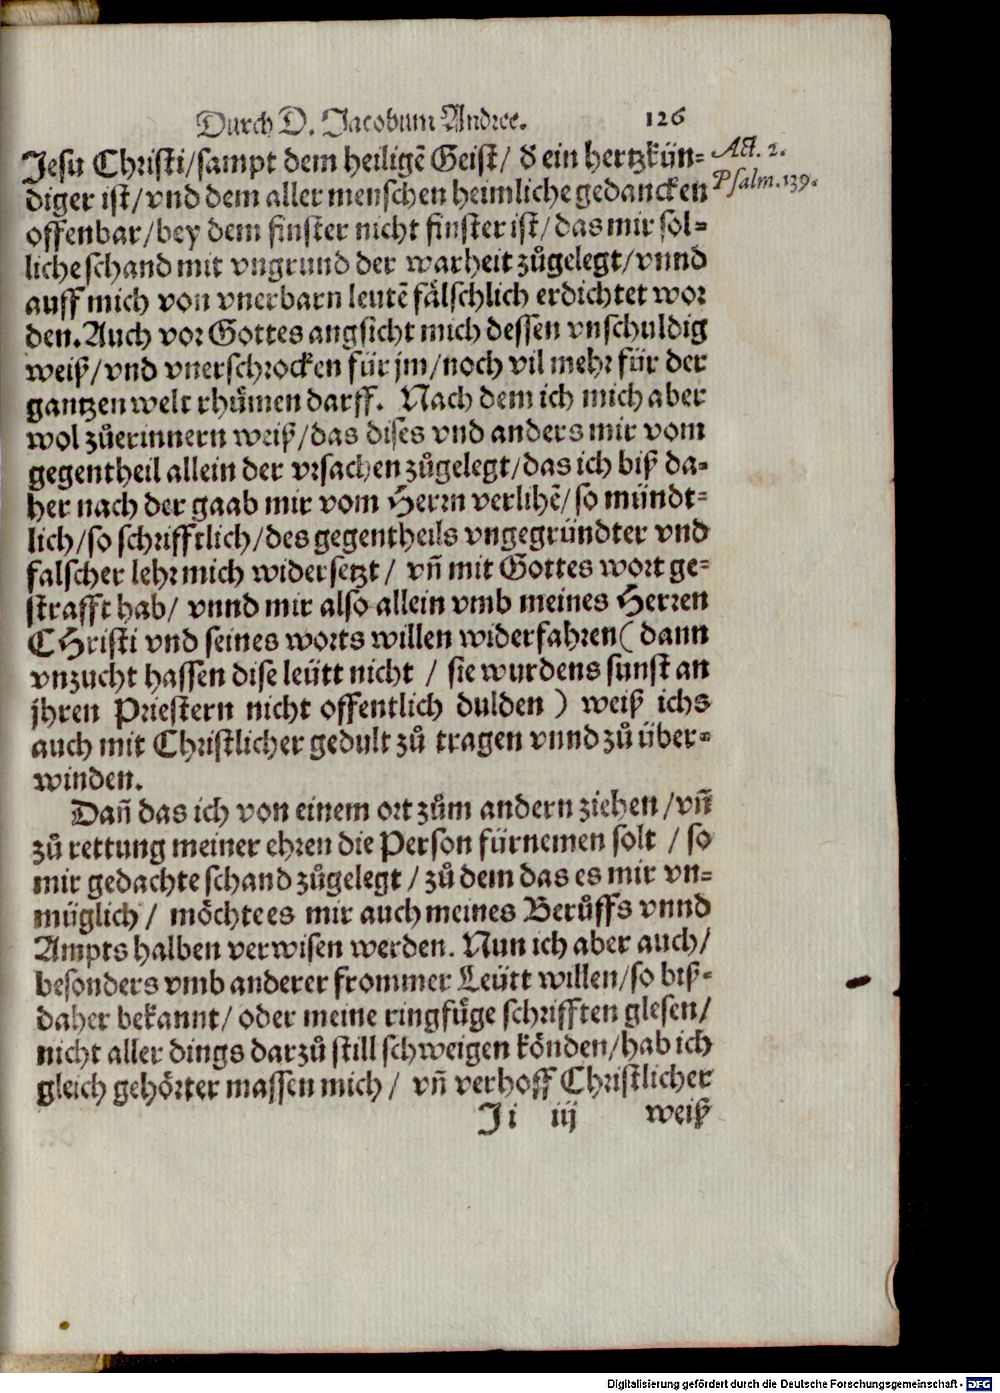 Durch D. Jacobum Andree. 126
Jesu Christi/sampt dem heiligẽ Geist/ d̕ ein hertzkün- Act. 2.
diger ist/vnd dem aller menschen heimliche gedancken Psalm. 139.
offenbar/bey dem finster nicht finster ist/das mir sol-
liche schand mit vngrund der warheit zůgelegt/vnnd
auff mich von vnerbarn leutẽ fälschlich erdichtet wor
den. Auch vor Gottes angsicht mich dessen vnschuldig
weiß/vnd vnerschrocken für jm/noch vil mehr für der
gantzen welt rhuͤmen darff. Nach dem ich mich aber
wol zůerinnern weiß/das dises vnd anders mir vom
gegentheil allein der vrsachen zůgelegt/das ich biß da-
her nach der gaab mir vom Herrn verlihẽ/so mündt-
lich/so schrifftlich/des gegentheils vngegründter vnd
falscher lehr mich widersetzt/ vñ mit Gottes wort ge-
strafft hab/ vnnd mir also allein vmb meines Herren
CHristi vnd seines worts willen widerfahren (dann
vnzucht hassen dise leütt nicht / sie wurdens sunst an
jhren Priestern nicht offentlich dulden) weiß ichs
auch mit Christlicher gedult zů tragen vnnd zů über-
winden.
Dañ das ich von einem ort zům andern ziehen/vñ
zů rettung meiner ehren die Person fürnemen solt / so
mir gedachte schand zůgelegt / zů dem das es mir vn-
müglich/ möchte es mir auch meines Berůffs vnnd
Ampts halben verwisen werden. Nun ich aber auch/
besonders vmb anderer frommer Leütt willen/so biß-
daher bekannt/oder meine ringfuͤge schrifften glesen/
nicht aller dings darzů still schweigen könden/hab ich
gleich gehörter massen mich/ vñ verhoff Christlicher
Ji iij weiß
Digitalisierung gefördert durch die Deutsche Forschungsgemeinschaft - DFG